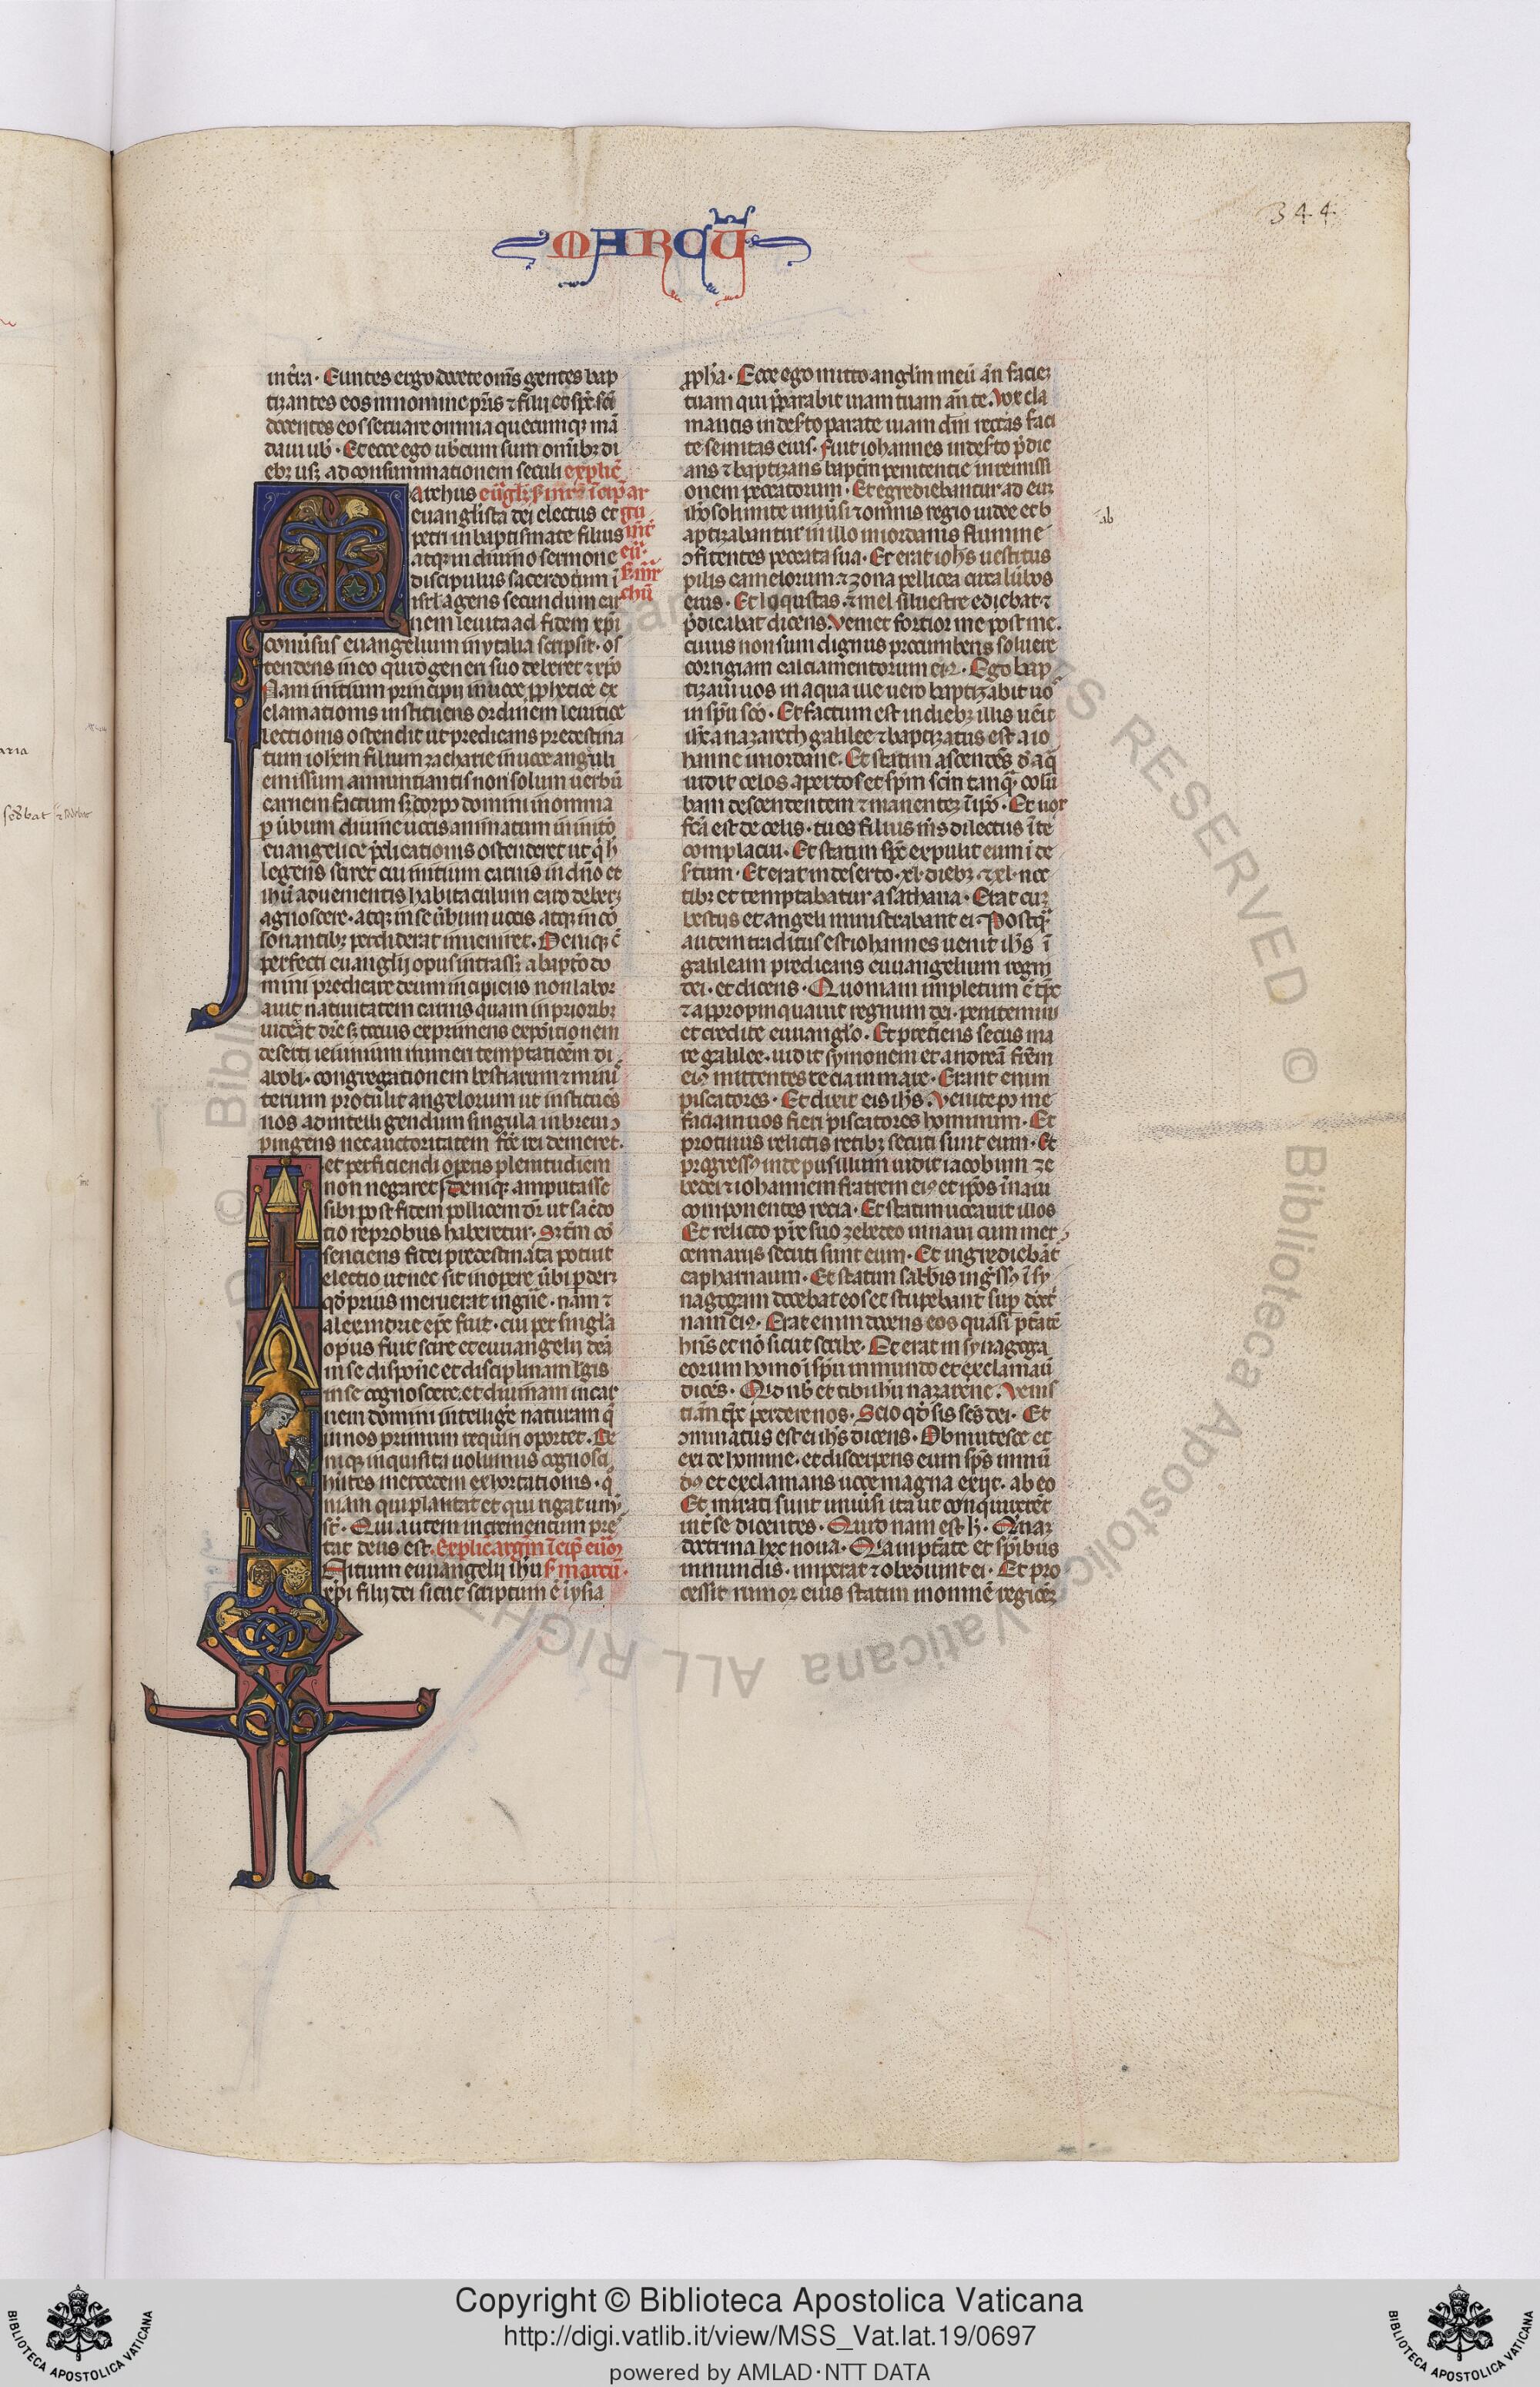 MARCUS
344
in terra. Euntes ergo docete oms gentes bap
tizantes eos in nomine pris ⁊ filij et sps sci
docentes eos seruare omnia quecumqz man
daui uob. Et ecce ego uobcum sum omibz di
ebz usqz ad consummationem seculi explic
archus
euanglista dei electus et
petri in baptismate filius
atqz in diuino sermone
discipulus sacerdotium i
isrl agens secundum car
nem leuita ad fidem xpi
conuersus euangelium in ytalia scripsit. os
tendens in eo quid generi suo deberet ⁊ xpo
Nam initium principij in uoce pphetice ex
clamationis instituens ordinem leuitice
lectionis ostendit ut predicans predestina
tum iohem filium zacharie in uoce angeli
emissum annuntiantis non solum uerbu
carnem factum sz corpus domini in omnia
p uerbum diuine uocis animatum in initio
euangelice predicationis ostenderet ut q h
legens sciret cui initium carnis in dno et
ihu aduenientis habitaculum caro deberet
agnoscere. atqz in se uerbum uocis atqz in con
sonantibz perdiderat inueniret. Deniqz e
perfecti euanglij opus intrassz a bapto do
mini predicare deum incipiens non labor
auit natiuitatem carnis quam in prioribz
uicerat dre sz totius exprimens expositionem
deserti ieiunium numeri temptationem di
aboli. congregationem bestiarum ⁊ minis
terium protulit angelorum ut instituens
nos ad intelligendum singula in breui co
pingens nec auctoritatem fce rei demeret.
et perficiendi operis plenitudinem
non negaret. Deniqz amputasse
sibi post fidem pollicem dr ut sacerdo
tio reprobus haberetur. Sz tm con
senciens fidei predestinata potuit
electio ut nec sic in opere uerbi perderz
qd prius meruerat in genere. nam ⁊
alexandrie epc fuit. cui per singla
opus fuit scire et euuangelij dca
in se disponere et disciplinam legis
in se cognoscere. et diuinam in car
nem domini intelligere naturam q
in nos primum requiri oportet. De
niqz inquisita uolumus cognosci
hntes mercedem exhortationis. q
niam qui plantat et qui rigat unum
st. Qui autem incrementum pre
stat deus est. Explic argm icip euuo
Initium euuangelij ihu s. marcu.
xpi filij dei sicut scriptum e i ysia
ppha. Ecce ego mitto anglm meu an faciez
tuam qui pparabit uiam tuam an te. Vox cla
mantis in deserto parate uiam dni rectas faci
te semitas eius. Fuit iohannes in deserto pdic
ans ⁊ baptizans baptm penitentie in remissi
onem peccatorum. Et egrediebantur ad eum
iherosolimite uniuersi ⁊ omnis regio iudee et b
aptizabantur in illo in iordanis flumine
ɔfitentes peccata sua. Et erat iohs uestitus
pilis camelorum ⁊ zona pellicea circa lubos
eius. Et loqustas ⁊ mel siluestre edebat. ⁊
pdicabat dicens. Veniet fortior me post me.
cuius non sum dignus procumbens soluere
corrigiam calciamentorum eius. Ego bap
tizaui uos in aqua ille uero baptizabit uos
in spu sco. Et factum est in diebz illis uenit
ihc a nazareth galilee ⁊ baptizatus est a io
hanne in iordane. Et statim ascendes d aqua
uidit celos apertos et spm scm tanqz colu
bam descendentem ⁊ manentez i ipo. Et uox
fca est de celis. tu es filius ms dilectus i te
complacui. Et statim spc expulit eum i de
stum. Et erat in deserto .xl. diebz ⁊ .xl. noc
tibz et temptabatur a sathana. Erat cuz
bestiis et angeli ministrabant ei. Postqz
autem traditus est iohannes uenit ihs i
galileam predicans euuangelium regni
dei. et dicens. Quoniam impletum e tps
⁊ appropinquauit regnum dei. penitemini
et credite euuanglo. Et preteriens secus ma
re galilee. uidit symonem et andrea frem
eius mittentes recia in mare. Erant enim
piscatores. Et dixit eis ihs. Venite po me
faciam uos fieri piscatores hominum. Et
protinus relictis retibz secuti sunt eum. Et
progressus inde pusillum uidit iacobum ze
bedei ⁊ iohannem fratrem eius et ipos i naui
componentes recia. Et statim uocauit illos
Et relicto pre suo zebedeo in naui cum mer
cennariis secuti sunt eum. Et ingrediebat
capharnaum. Et statim sabbis ingssus i sy
nagogam docebat eos et stupebant sup doct
nam eius. Erat enim docens eos quasi ptate
hns et no sicut scribe. Et erat in synagoga
eorum homo i spu inmundo et exclamaui
dicens. Qid nob et tibi ihu nazarene. Venis
ti an tpe perdere nos. Scio qd sis scs dei. Et
ɔminatus est ei ihs dicens. Obmutesce et
exi de homine. et discerpens eum sps inmu
dus et exclamans uoce magna exijt. ab eo
Et mirati sunt uniuersi ita ut conquireret
int se dicentes. Quid nam est h. Qnaz
doctrina hec noua. Qa in ptate et spibus
inmundis. imperat ⁊ obediunt ei. Et pro
cessit rumor eius statim in omne regionez
ab
© Biblioteca Apostolica Vaticana ALL RIGHTS RESERVED
Copyright © Biblioteca Apostolica Vaticana
http://digi.vatlib.it/view/MSS_Vat.lat.19/0697
powered by AMLAD·NTT DATA
BIBLIOTECA APOSTOLICA VATICANA
BIBLIOTECA APOSTOLICA VATICANA